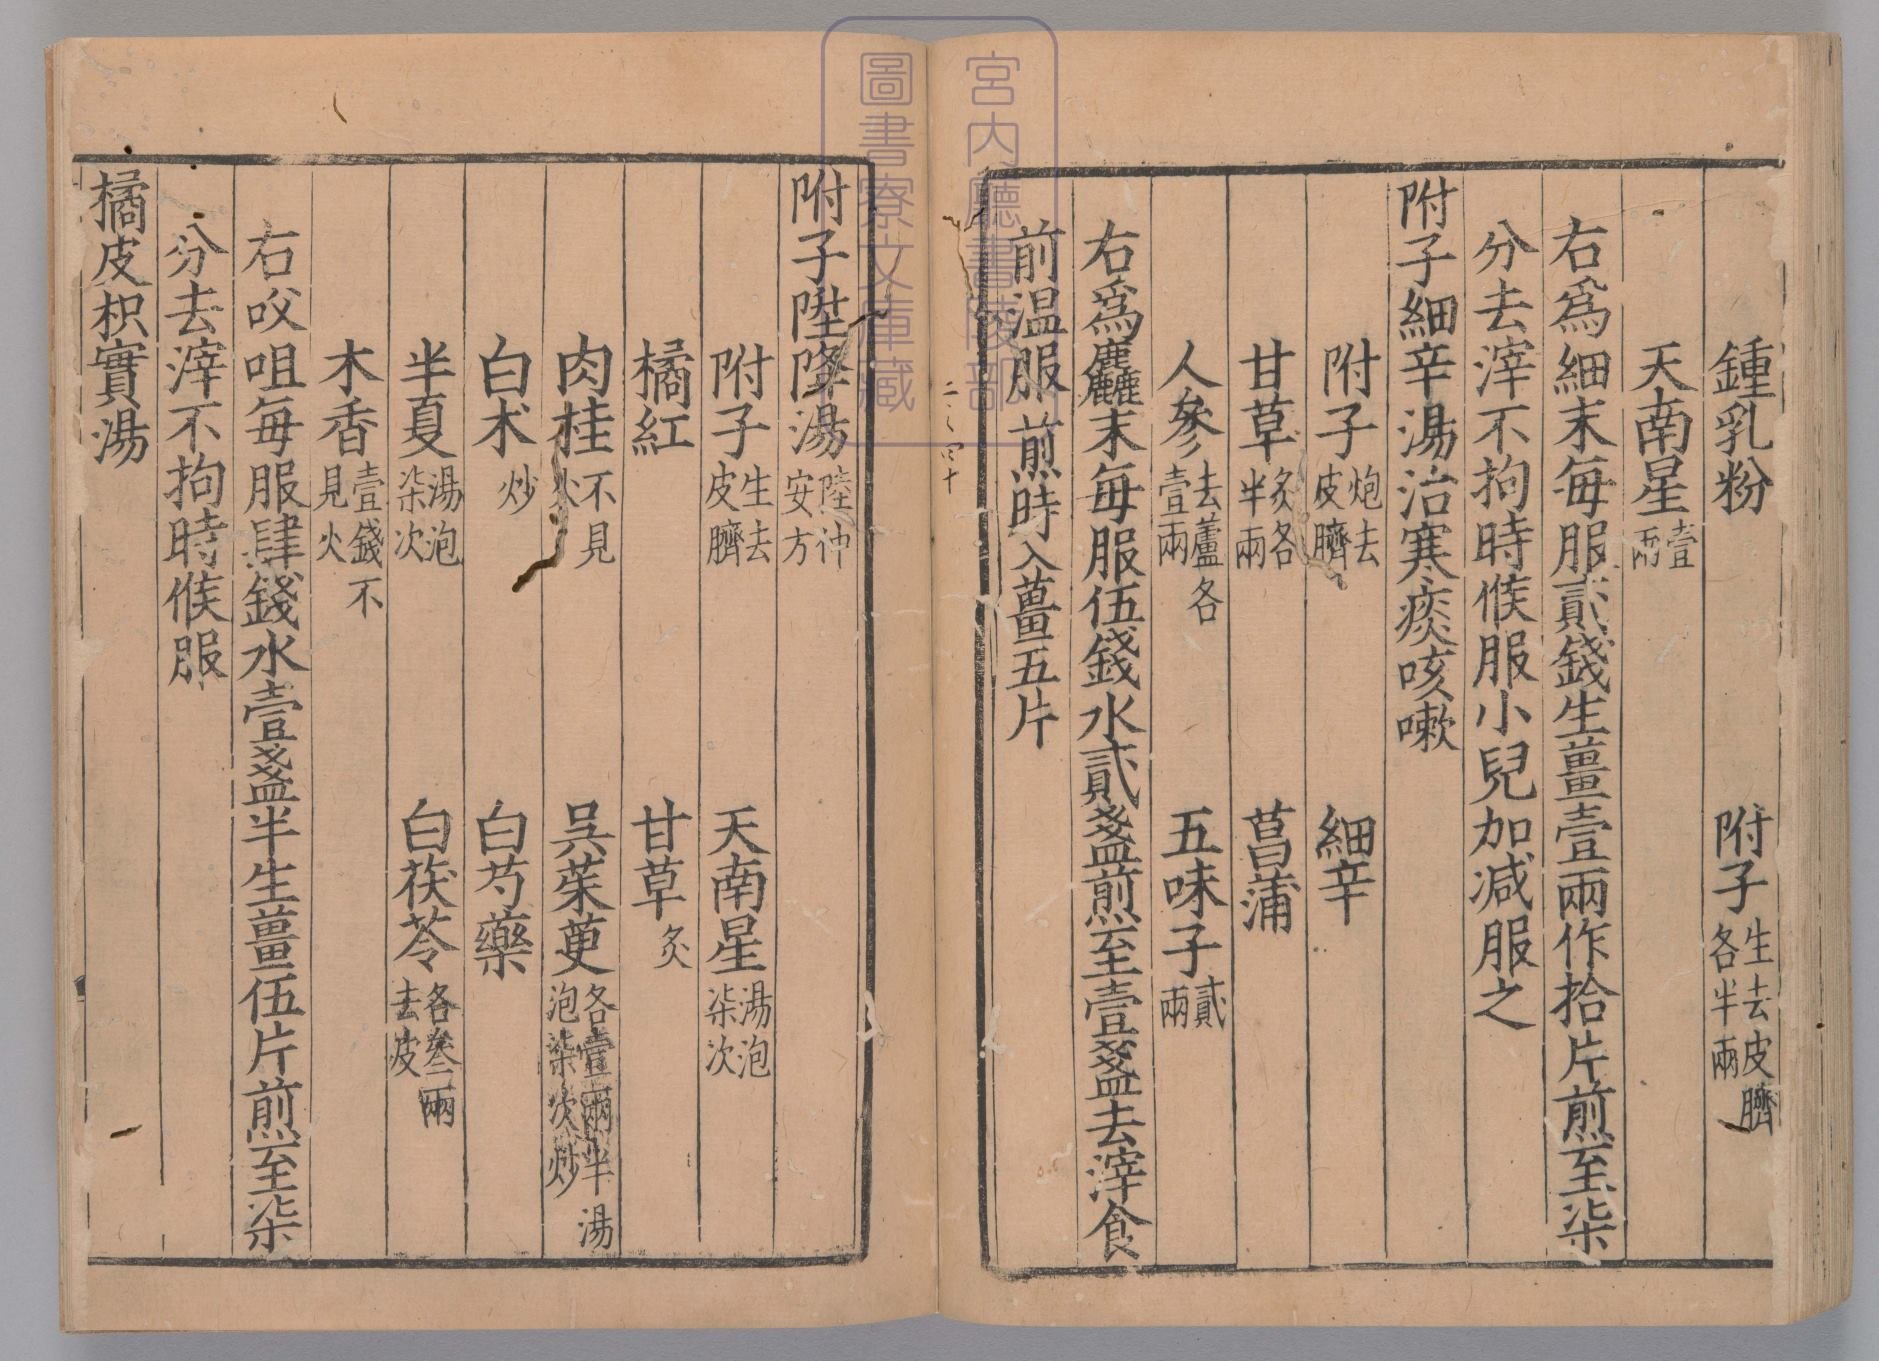 鍾乳粉 附子生去皮臍各半兩
天南星壹兩
右爲細末每服貳錢生薑壹兩作拾片煎至柒
分去滓不拘時候服小兒加減服之
附子細辛湯治寒痰咳嗽
附子炮去皮臍 細辛
甘草炙各半兩 菖蒲
人參去蘆各壹兩 五味子貳兩
右爲麤末每服伍錢水貳盞煎至壹盞去滓食
前温服煎時入薑五片
附子陞降湯陸仲安方
附子生去皮臍 天南星湯泡柒次
橘紅 甘草炙
肉桂不見火 呉茱萸各壹兩半湯泡柒次炒
白朮炒 白芍藥
半夏湯泡柒次 白茯苓各叄兩去皮
木香壹錢不見火
右㕮咀每服肆錢水壹盞半生薑伍片煎至柒
分去滓不拘時候服
橘皮枳實湯
宮内廳書陵部
圖書寮文庫藏